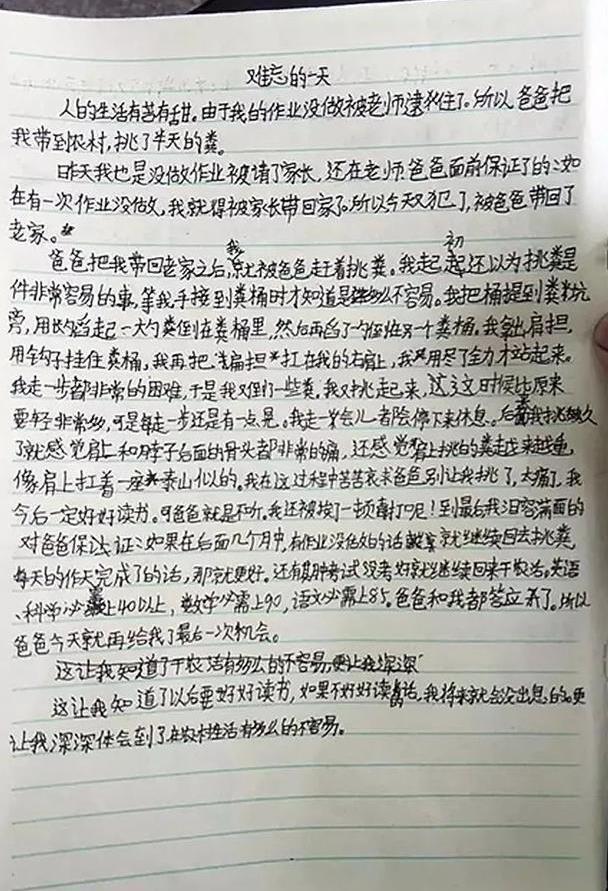 难忘的一天
人的生活有苦有甜。由于我的作业没做被老师逮犯住了。所以爸爸把
我带到农村，挑了半天的粪。
昨天我也是没做作业被请了家长，还在老师爸爸面前保证了的：如
在有一次作业没做，我就得被家长带回家了。所以今天又犯了，被爸爸带回了
老家。
爸爸把我带回老家之后，我就被爸爸赶着挑粪。我起初还以为挑粪是
件非常容易的事，等我手接到粪桶时才知道是多么不容易。我把桶提到粪坑
旁，用长勺舀起一大勺粪倒在粪桶里，然后再舀了一勺倒在另一个粪桶。我拿出肩担，
用钩子挂住粪桶，我再把扁担扛在我的右肩上，我用尽了全力才站起来。
我走一步都非常的困难，于是我又倒了一些粪。我又挑起来，这这时候比原来
要轻非常多，可是每走一步还是有一点晃。我走一会儿都会停下来休息。后我挑久
了就感觉肩上和脖子后面的骨头都非常的痛，还感觉肩上挑的粪越来越重，
像肩上扛着一座泰山似的。我在这过程中苦苦哀求爸爸别让我挑了，太痛了，我
今后一定好好读书。可爸爸就是不听。我还被挨了一顿打呢！到最后我泪容满面的
对爸爸保证：如果在后面几个月中，有作业没做的话就继续回去挑粪，
每天的作天完成了的话，那就更好。还有期中考试没考好就继续回来干农活。英语
、科学必需上40以上，数学必需上90，语文必需上85。爸爸和我都答应了。所以
爸爸今天就再给我了最后一次机会。
这让我知道了干农活有多么的不容易，更让我深深
这让我知道了以后要好好读书，如果不好好读书的话，我将来就会没出息的。更
让我深深体会到了在农村生活有多么的不容易。